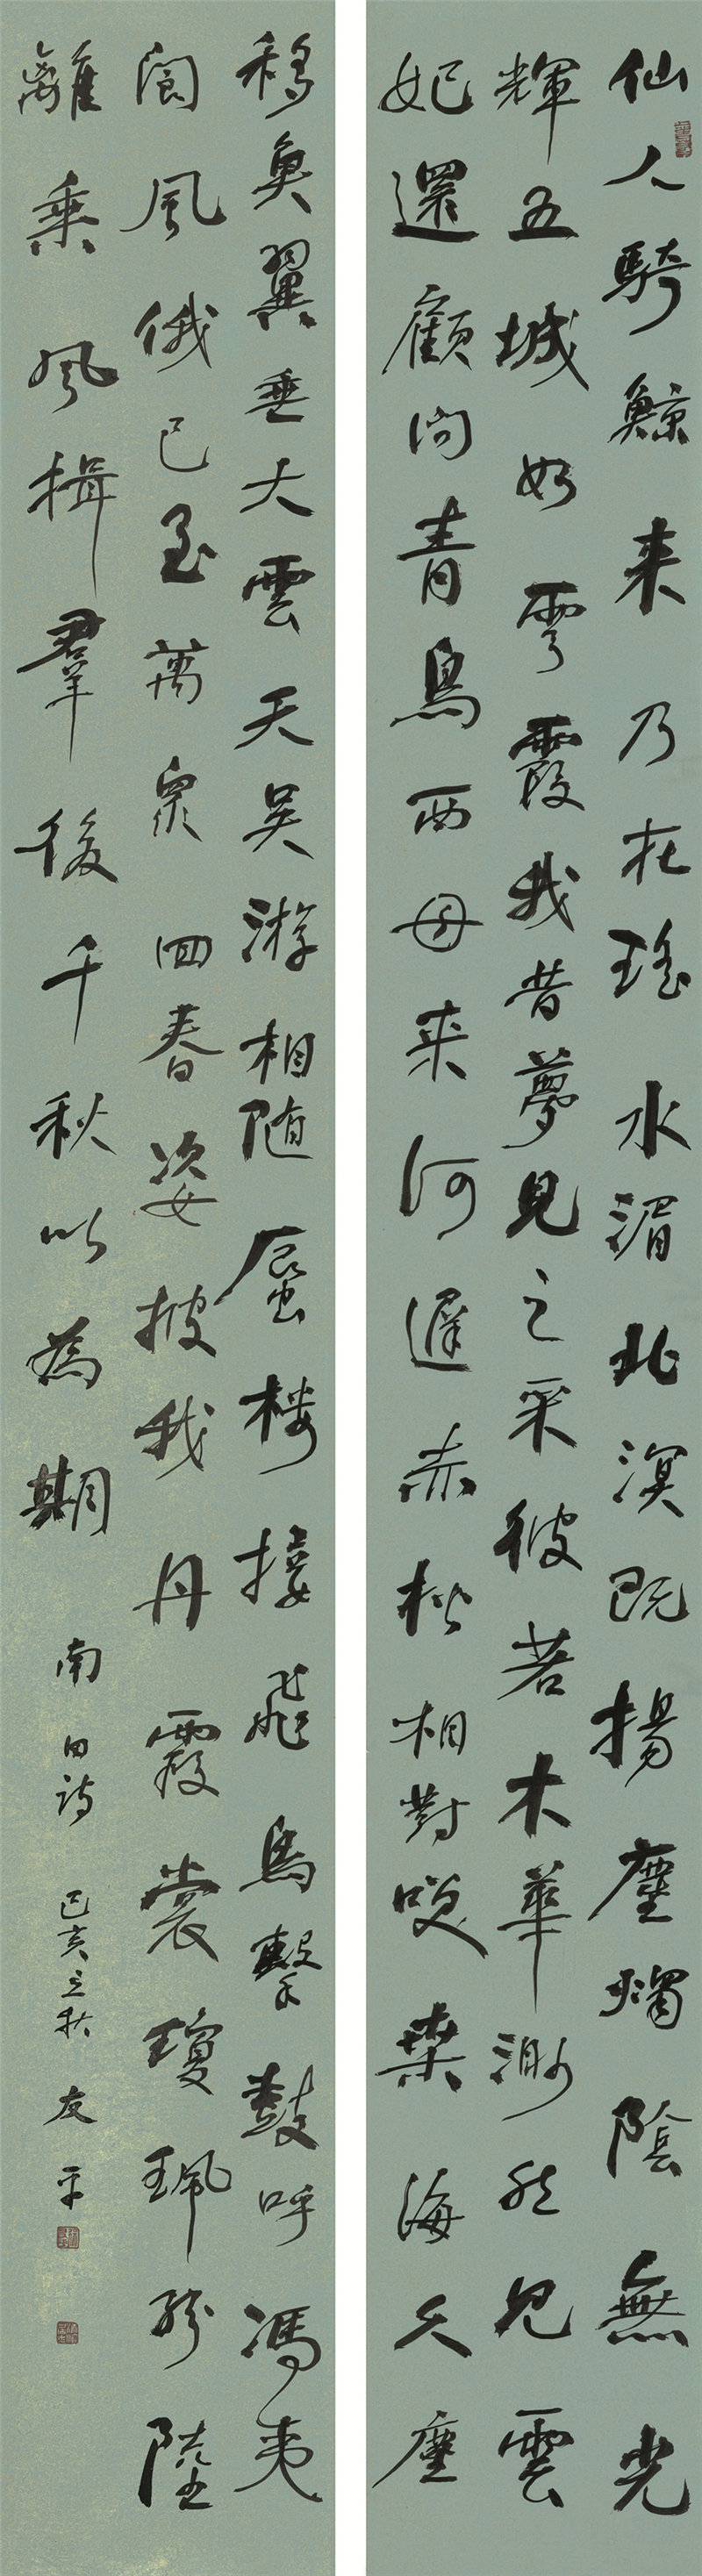 仙人騎鯨来乃在瑤水湄北溟既揚塵燭陰無光
輝五城如雲霞我昔夢見之采彼若木華渺然見雲
妃還顧問青鳥西母来何遲赤松相對咲桑海久塵
移魚翼垂大雲天吳游相随蜃楼接飛鳥擊鼓呼馮夷
閬風俄已至萬眾回春姿披我丹霞裳瓊珮紛陸
離乘風揖羣後千秋以為期
南田詩 己亥立秋 友平